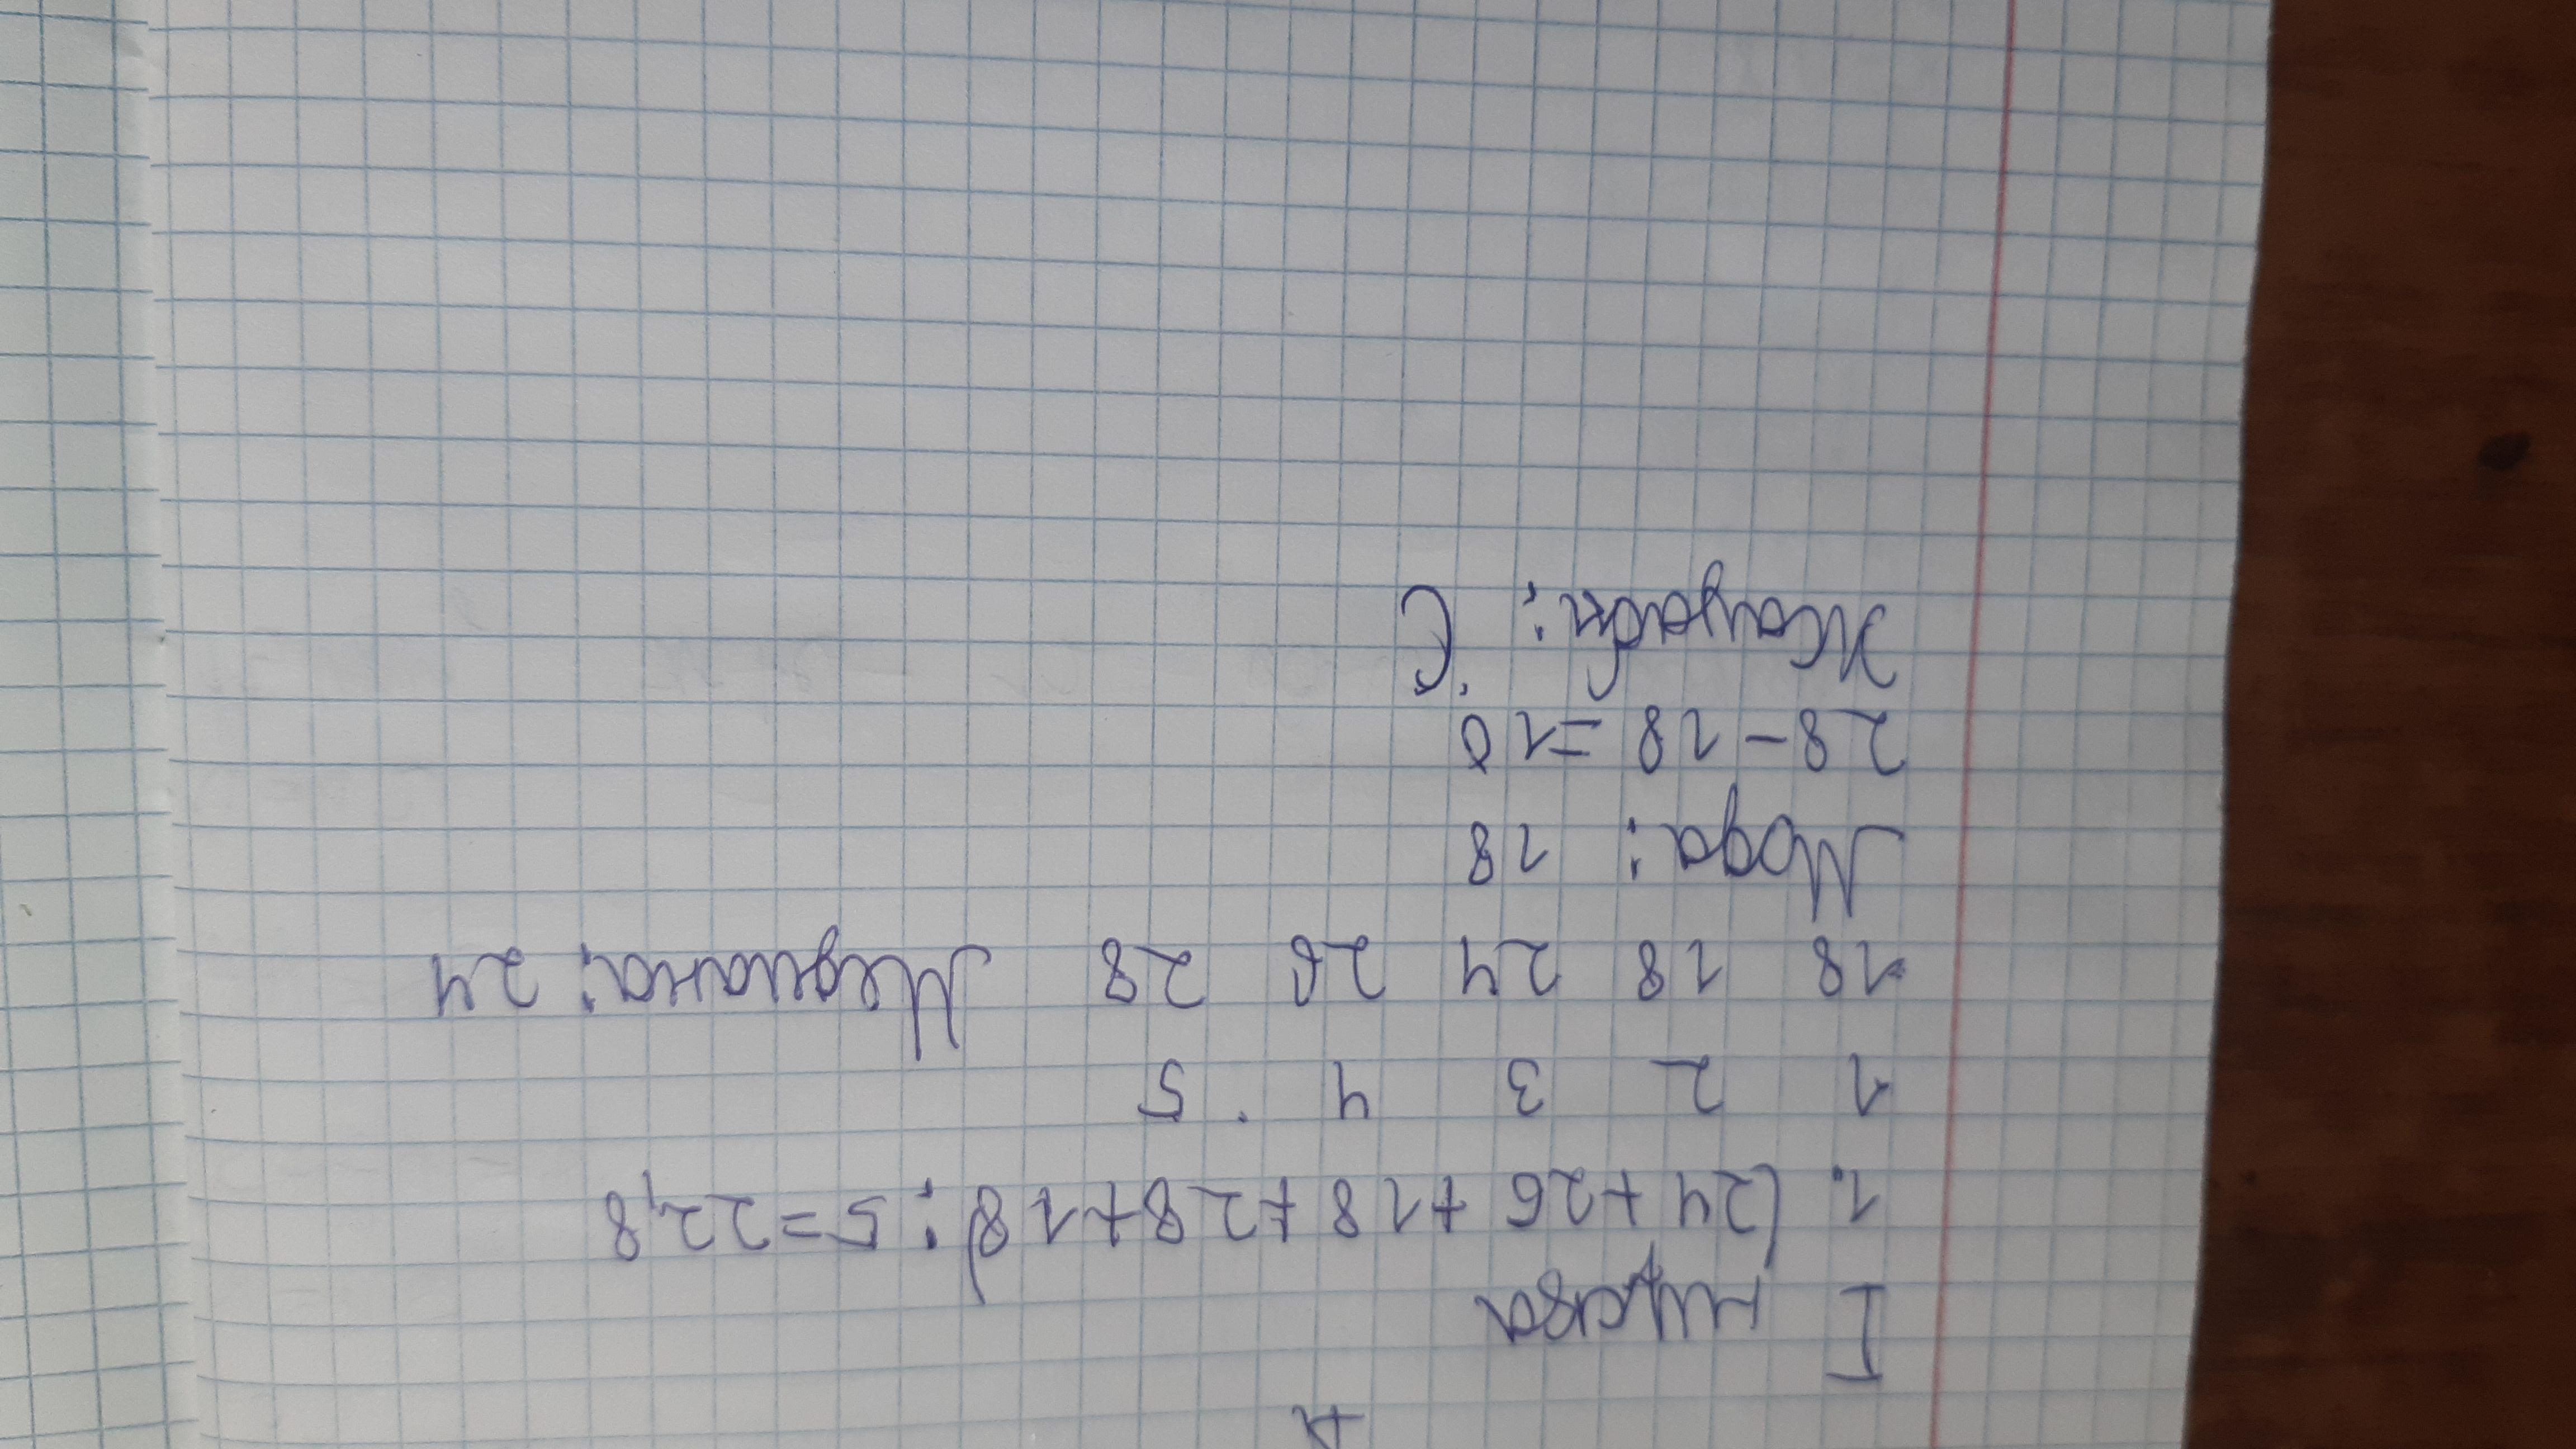 I нұсқа
1. (24+26+18+28+18):5=22,8
1 2 3 4 5
18 18 24 26 28 Медиана: 24
Мода: 18
28-18=10
Жауабы: С